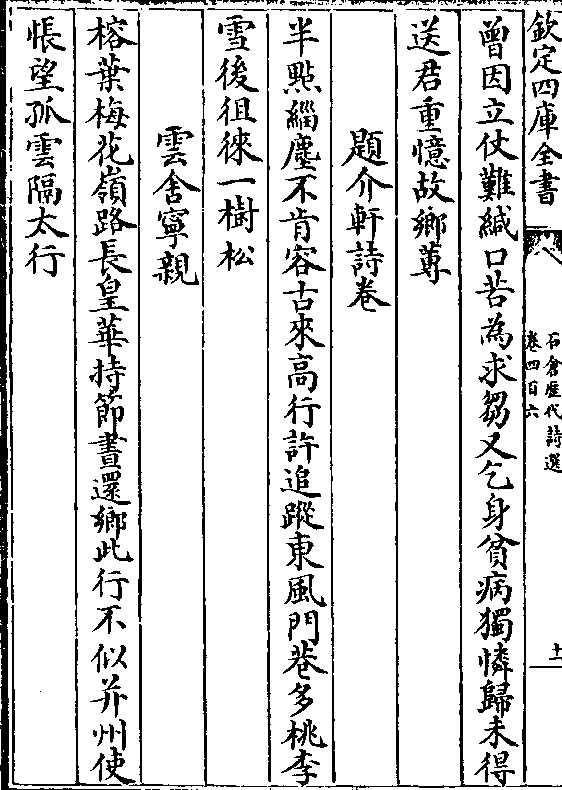 欽定四庫全書
石倉歷代詩選
卷四百六
十一
曾因立仗難緘口苦為求芻又乞身貧病獨憐歸未得
送君重憶故鄉蓴
題介軒詩卷
半點緇塵不肯容古來高行許追蹤東風門巷多桃李
雪後徂徠一樹松
雲舍寧親
榕葉梅花嶺路長皇華持節晝還鄉此行不似并州使
悵望孤雲隔太行